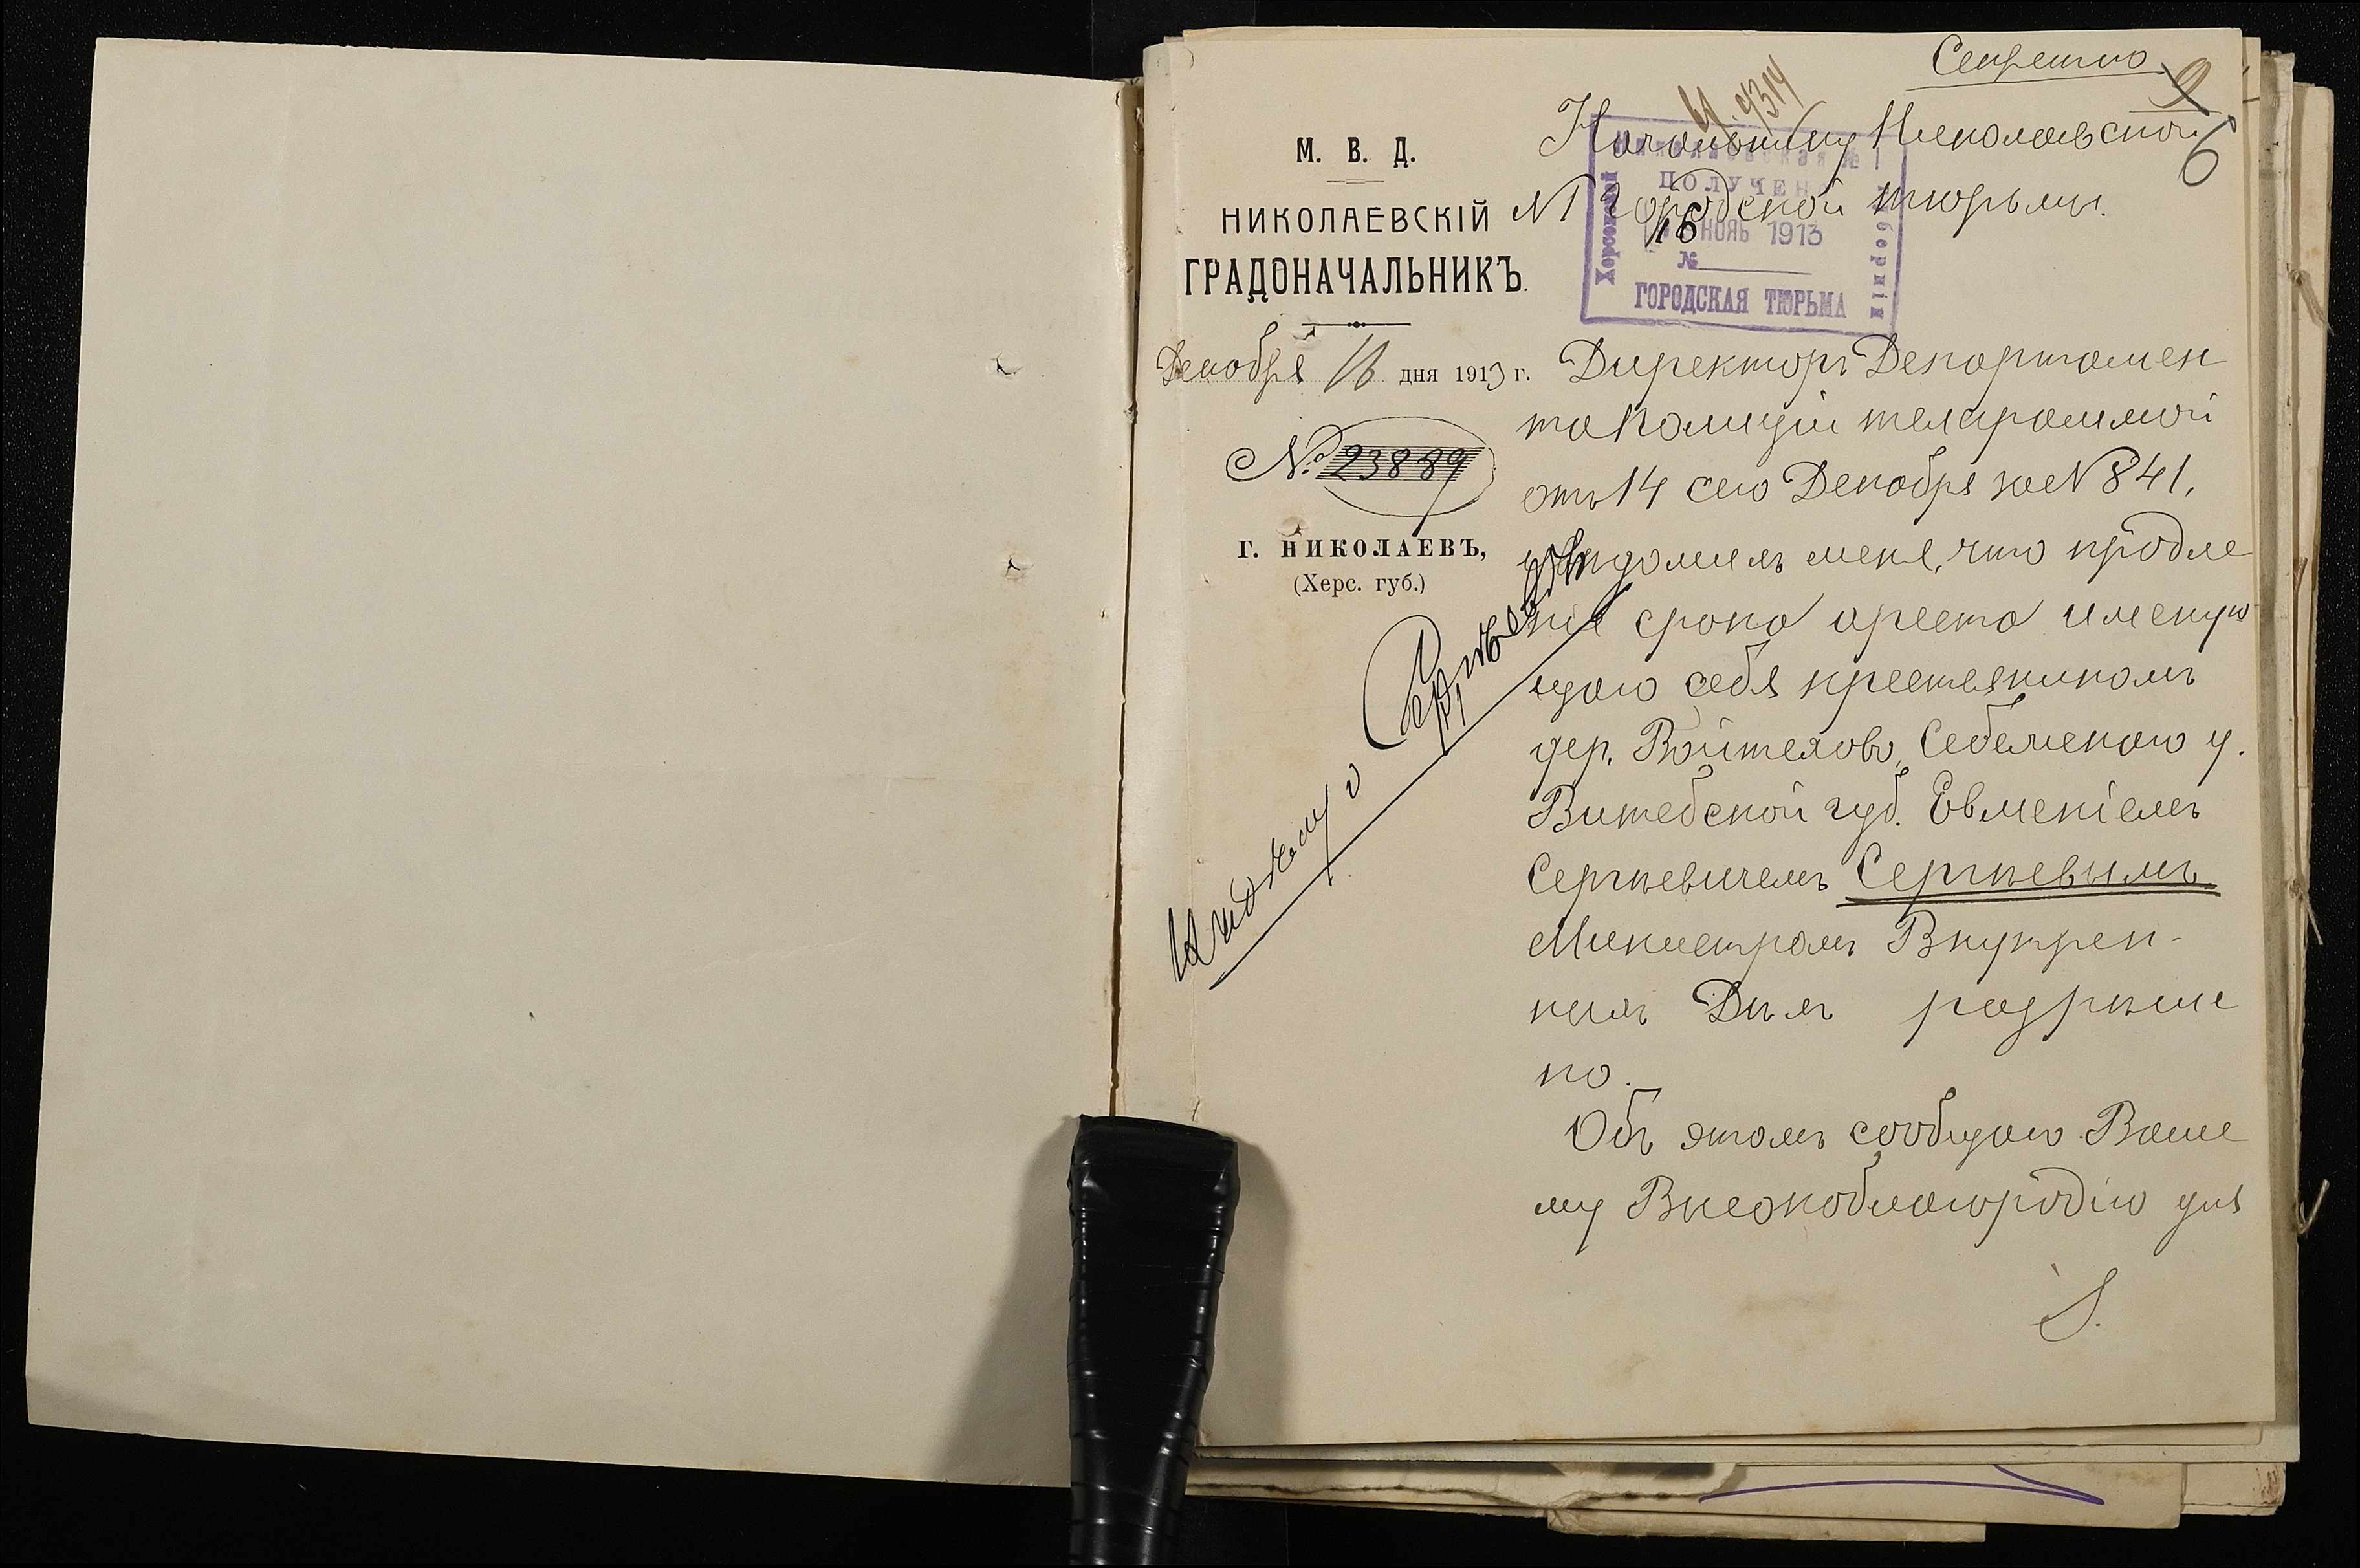 Секретно
9
6
М. В. Д.
НИКОЛАЕВСКІЙ
ГРАДОНАЧАЛЬНИКЪ.
Декабря 16 дня 1913 г.
№ 23889
Г. НИКОЛАЕВЪ,
(Херс. губ.)
4314
Начальнику Николаевской
N1 городской тюрьмы.
Николаевская № 1
ПОЛУЧЕН
16 НОЯБ 1913
№
ГОРОДСКАЯ ТЮРЬМА
Херсонской
губерніи
Директоръ Департамен
та Полиціи телеграммой
отъ 14 сего Декабря за N 841,
увѣдомилъ меня, что продле
ніе срока ареста именую
щаго себя крестьяниномъ
дер. Войтехово, Себежскаго у.
Витебской губ. Евменіемъ
Сергѣевичемъ Сергѣевымъ
Министромъ Внутрен-
нихъ Дѣлъ разрѣше
но.
Объ этомъ сообщаю Ваше
му Высокоблагородію для
Сергѣевъ